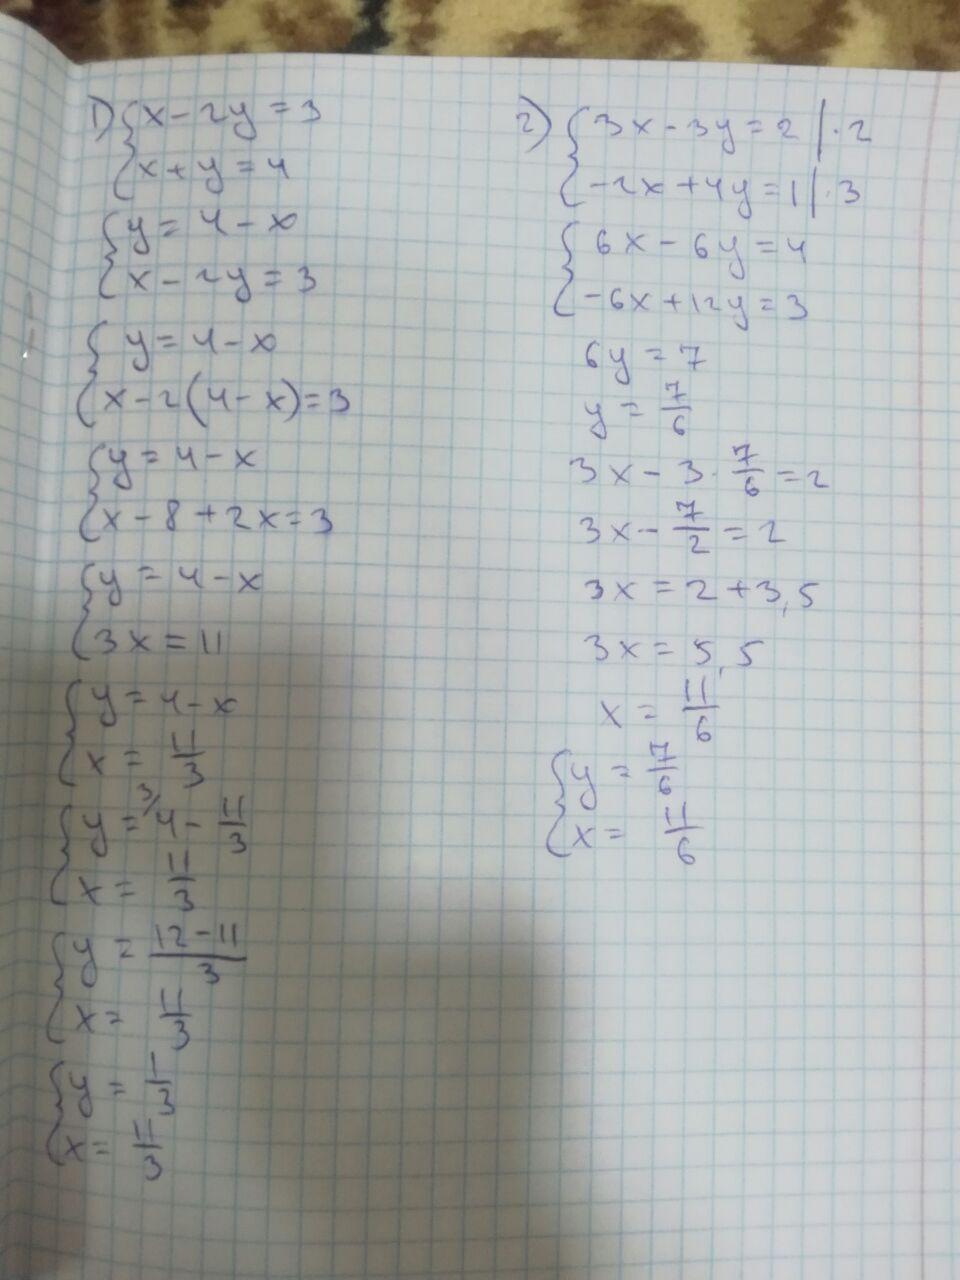 1) { x - 2y = 3
x + y = 4
{ y = 4 - x
x - 2y = 3
{ y = 4 - x
x - 2(4 - x) = 3
{ y = 4 - x
x - 8 + 2x = 3
{ y = 4 - x
3x = 11
{ y = 4 - x
x = 11/3
{ y = 3/ 4 - 11/3
x = 11/3
{ y = (12 - 11)/3
x = 11/3
{ y = 1/3
x = 11/3
2) { 3x - 3y = 2 | · 2
-2x + 4y = 1 | · 3
{ 6x - 6y = 4
-6x + 12y = 3
6y = 7
y = 7/6
3x - 3 · 7/6 = 2
3x - 7/2 = 2
3x = 2 + 3,5
3x = 5,5
x = 11/6
{ y = 7/6
x = 11/6